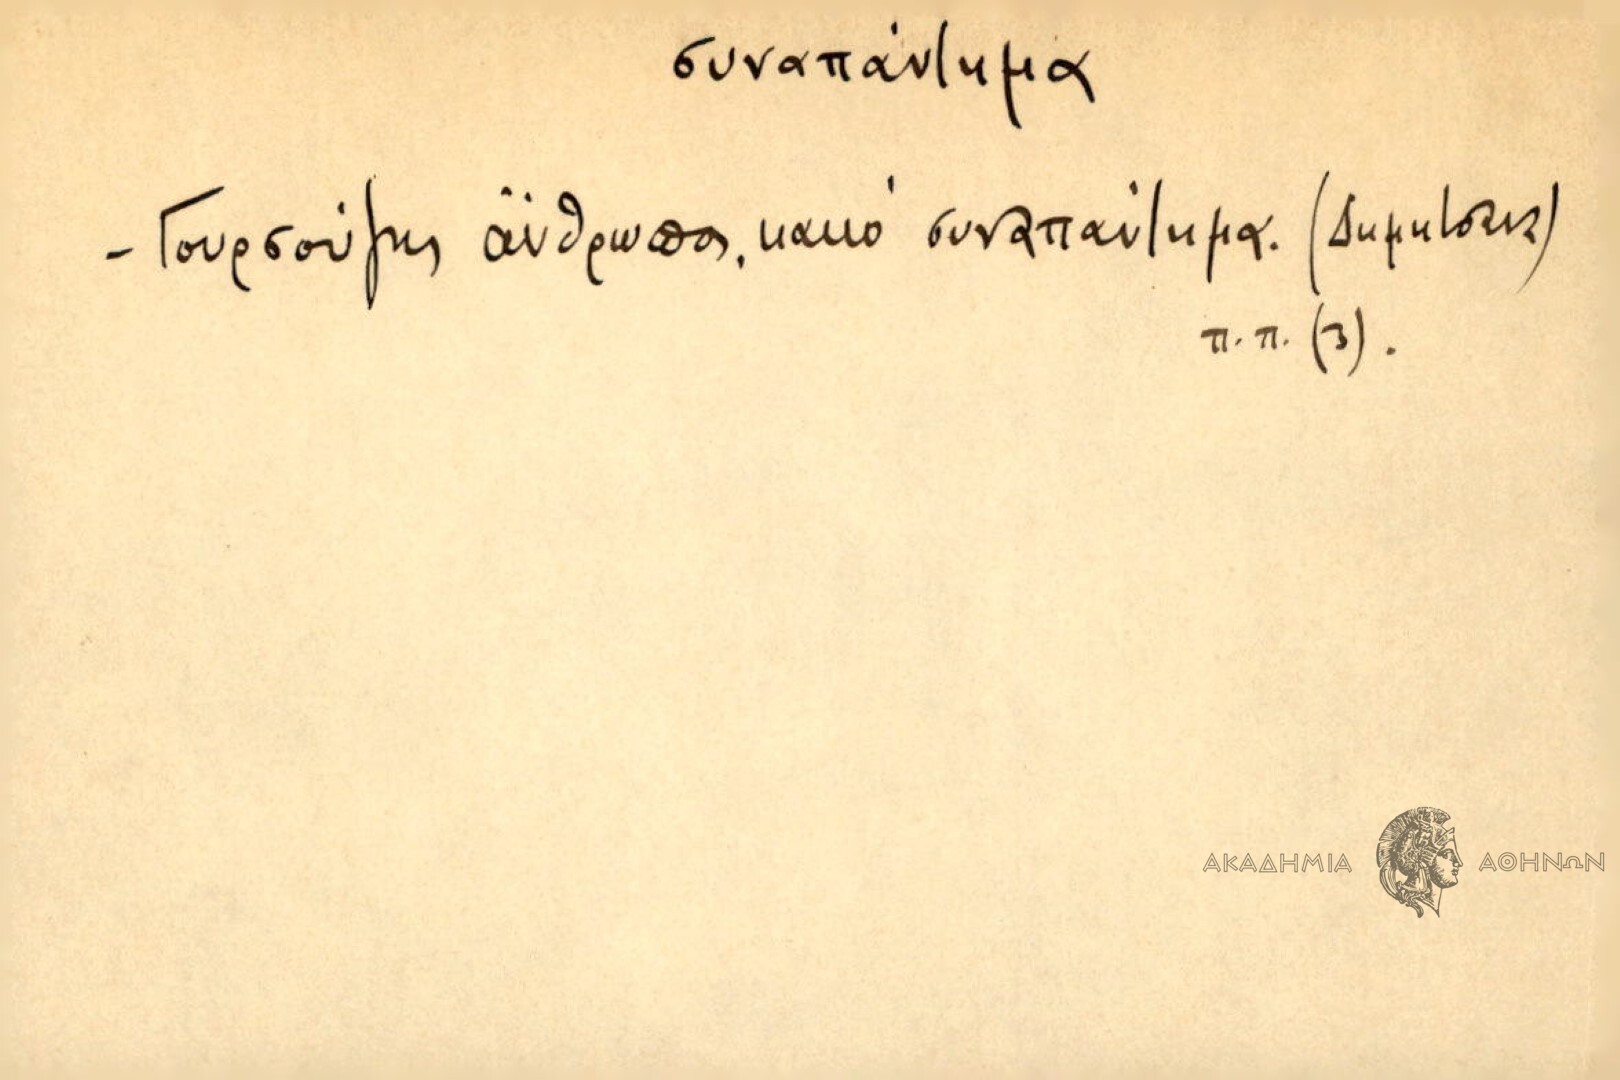 συναπάντημα
- Γουρσούζης ἄνθρωπος, κακό συναπάντημα. (Δημητσάνα)
π.π. (3).
ΑΚΑΔΗΜΙΑ ΑΘΗΝΩΝ